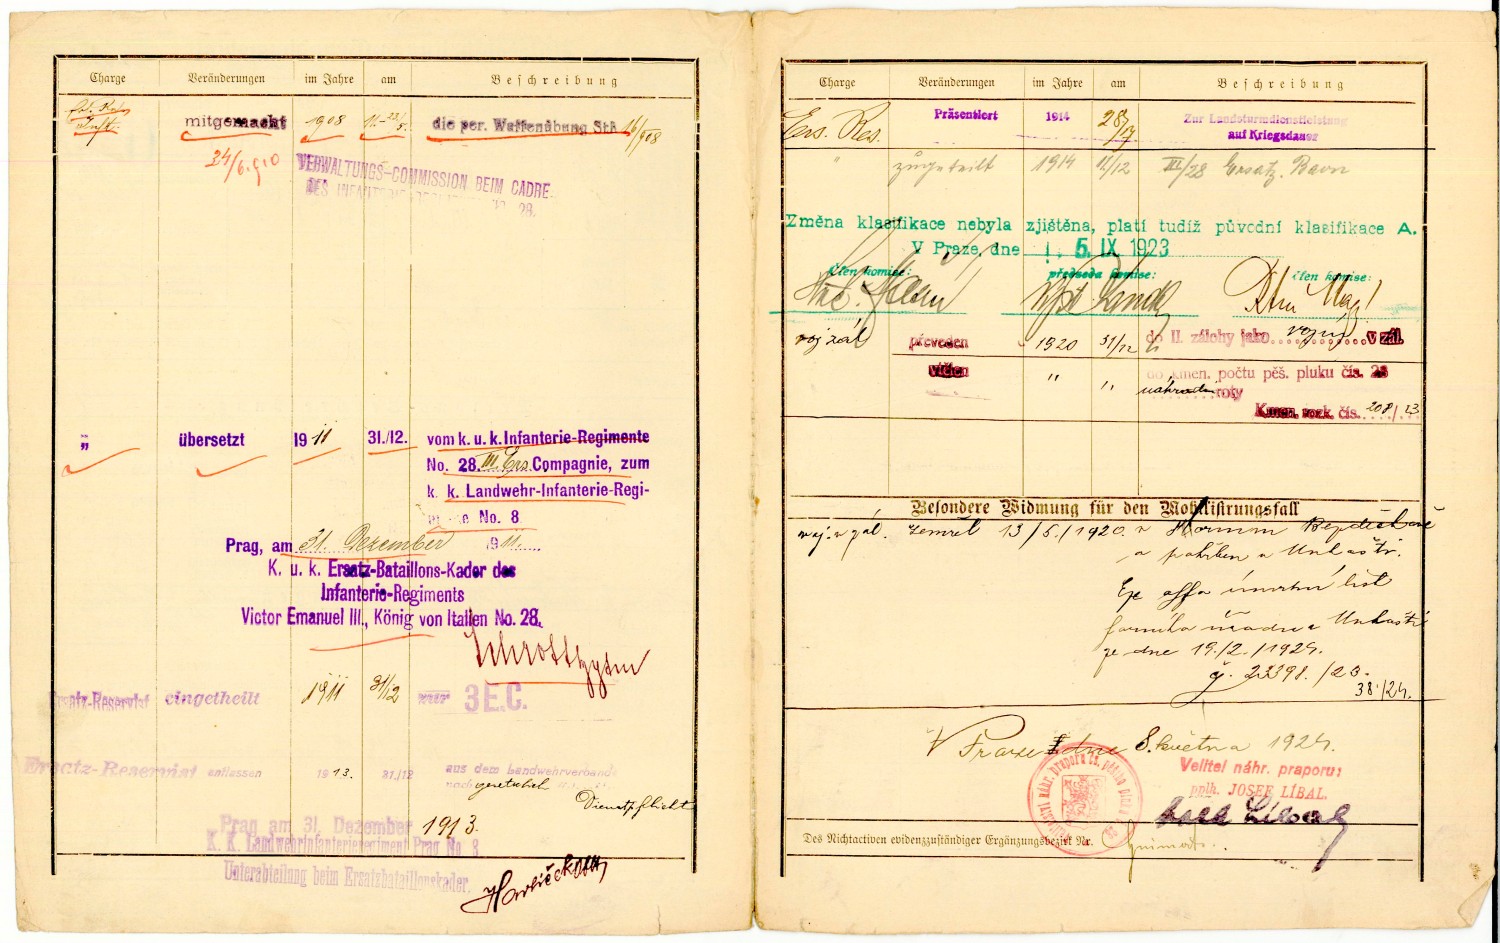 Charge Veränderungen im Jahre am Beschreibung
mitgemacht 1908 die per. Waffenübung StA 16/908
24/6.910
VERWALTUNGS-COMMISSION BEIM CADRE
DES 28.
" übersetzt 1911 31./12. vom k. u. k. Infanterie-Regimente
No. 28. III. Ers. Compagnie, zum
k. k. Landwehr-Infanterie-Regi-
No. 8
Prag, am 31. Dezember 1911.
K. u. k. Ersatz-Bataillons-Kader des
Infanterie-Regiments
Victor Emanuel III., König von Italien No. 28.
Ersatz-Reservist eingetheilt 1911 31/12 3 E.C.
Ersatz-Reservist entlassen 1913. 31./12 aus dem Landwehrverbande
nach gesetzlich
Dienstpflicht
Prag am 31. Dezember 1913.
K. K. Landwehrinfanterieregiment Prag No 8
Unterabteilung beim Ersatzbataillonskader.
Charge Veränderungen im Jahre am Beschreibung
Ers. Res. Präsentiert 1914 28/7 Zur Landsturmdienstleistung
auf Kriegsdauer
" zugeteilt 1914 11/12 III/28 Ersatz. Baon
Změna klasifikace nebyla zjištěna, platí tudíž původní klasifikace A.
V Praze, dne 5. IX 1923
člen komise: předseda komise: člen komise:
voj. zál. převeden 1920 31/12 do II. zálohy jako vojín v zál.
vtělen " " do kmen. počtu pěš. pluku čís. 28
náhradní roty
Kmen. rozk. čís. 208/23
Besondere Widmung für den Mobilisirungsfall
voj. v zál. zemřel 13/5./1920. v
a pohřben v Unhošti.
úmrtní list
farního úřadu v Unhošti
ze dne 19./2./1924.
č. 23398./23.
38./24.
V Praze dne 8. května 1924.
Velitel náhr. praporu:
pplk. JOSEF LÍBAL.
Des Nichtactiven evidenzzuständiger Ergänzungsbezirk Nr.